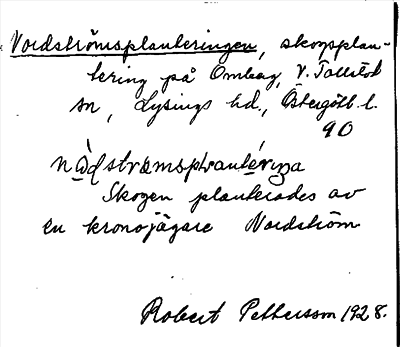 Nordströmsplanteringen, skogsplan-
tering på Omberg, V. Tollstad
sn, Lysings hd., Östergötl. l.
90
Skogen planterades av
en kronojägare Nordström
Robert Pettersson 1928.